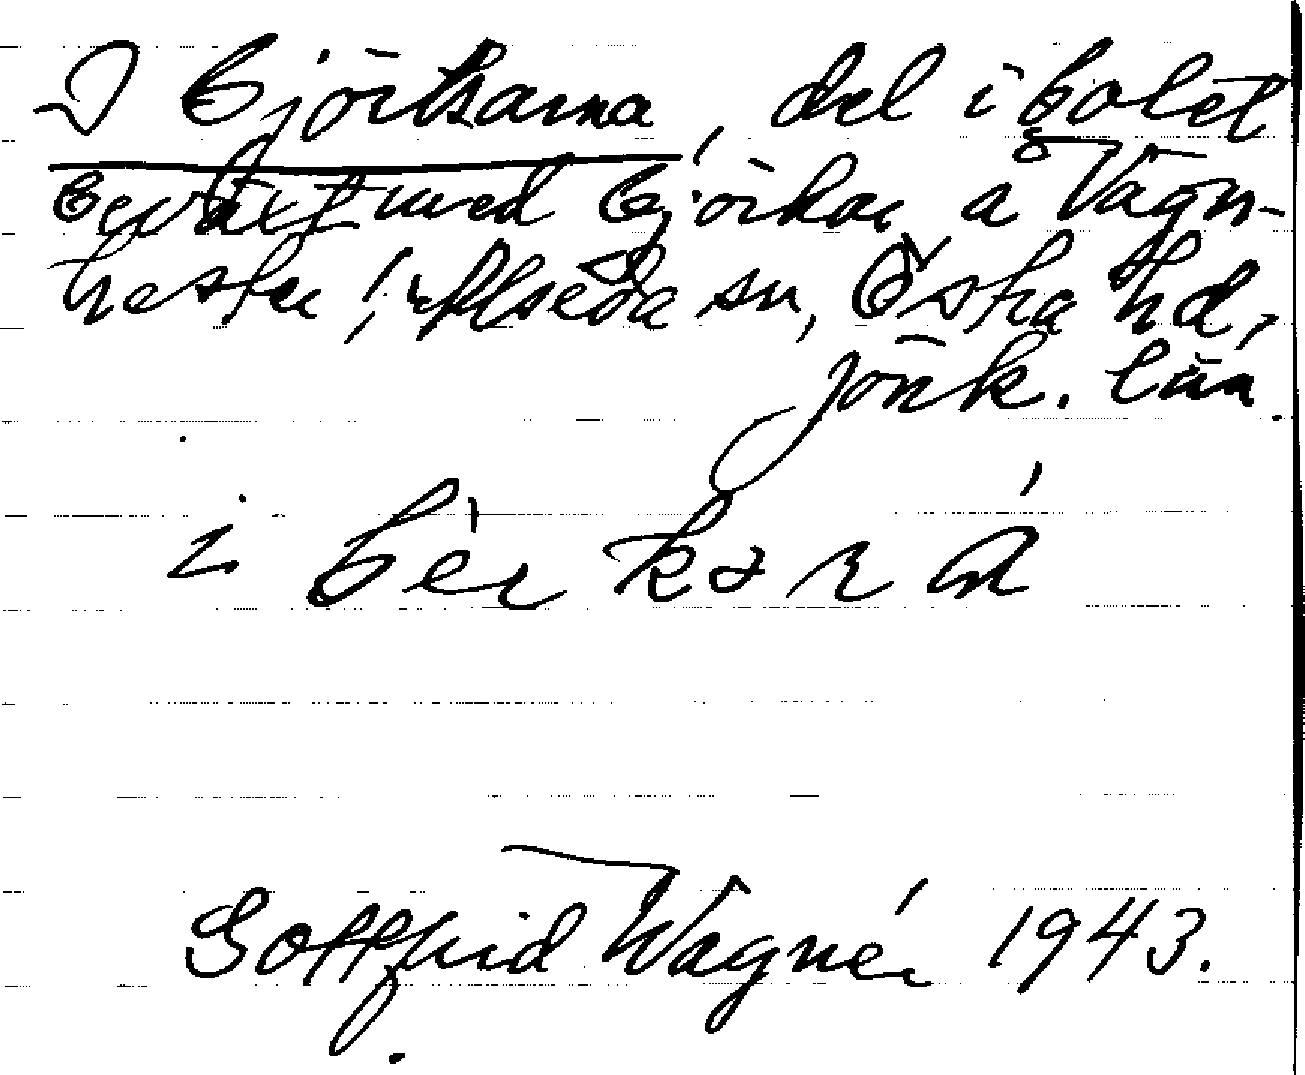 I björkarna, del i bolet
beväxt med björkar å Vagn-
hester i Alseda sn, Östra hd,
Jönk. län.
i bèrkərá
Gottfrid Wagnér 1943.